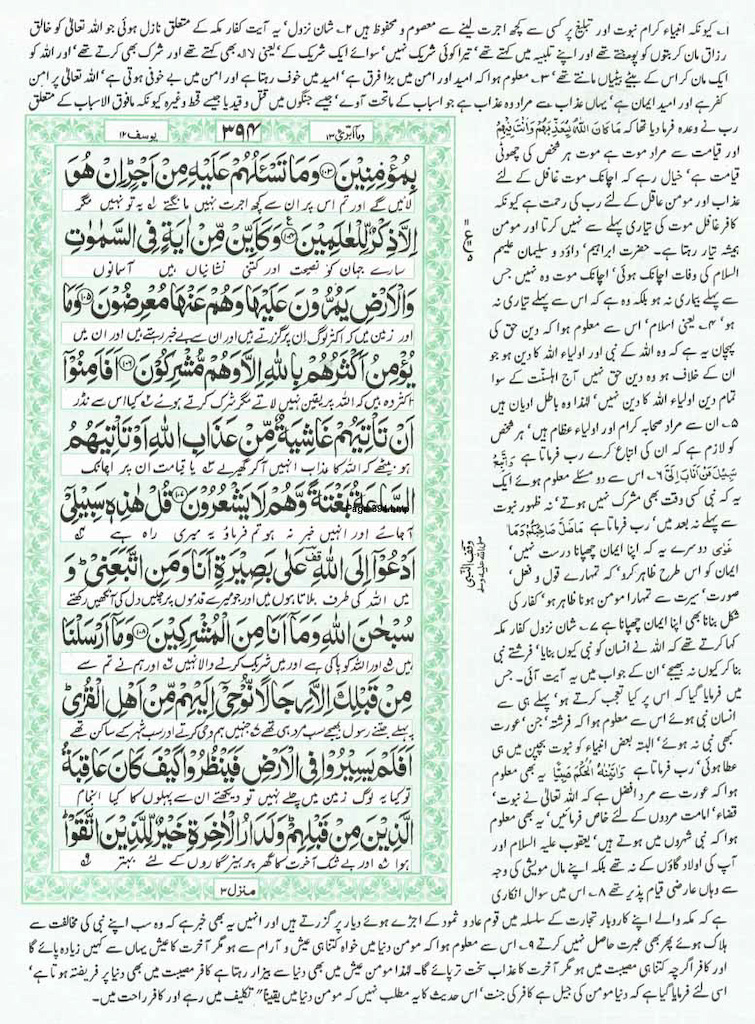 ۱؎ کیونکہ انبیاء کرام نبوت اور تبلیغ پر کسی سے کچھ اجرت لینے سے معصوم و محفوظ ہیں ۲؎ شان نزول' یہ آیت کفار مکہ کے متعلق نازل ہوئی جو اللہ تعالیٰ کو خالق
رزاق مان کر بتوں کو پوجتے تھے اور اپنے تلبیہ میں کہتے تھے' تیرا کوئی شریک نہیں' سوائے ایک شریک کے' یعنی لا الہ بھی کہتے تھے اور شرک بھی کرتے تھے' اور اللہ کو
ایک مان کر اس کے بیٹے بیٹیاں مانتے تھے' ۳؎ معلوم ہوا کہ امید اور امن میں بڑا فرق ہے' امید میں خوف رہتا ہے اور امن میں بے خوفی ہوتی ہے' اللہ تعالیٰ پر امن
کفر ہے اور امید ایمان ہے' یہاں عذاب سے مراد وہ عذاب ہے جو اسباب کے ماتحت آوے' جیسے جنگوں میں قتل و قید یا جیسے قحط وغیرہ کیونکہ مافوق الاسباب کے متعلق
وما ابرئ ۱۳
۳۹۴
یوسف ۱۲
بِمُؤْمِنِيْنَ ۱۰۳ وَمَا تَسْـَٔلُهُمْ عَلَيْهِ مِنْ اَجْرٍ اِنْ هُوَ
لائیں گے اور تم اس پر ان سے کچھ اجرت نہیں مانگتے یہ تو نہیں مگر
اِلَّا ذِكْرٌ لِّلْعٰلَمِيْنَ ۱۰۴ وَكَاَيِّنْ مِّنْ اٰيَةٍ فِي السَّمٰوٰتِ
سارے جہان کو نصیحت اور کتنی نشانیاں ہیں آسمانوں
وَالْاَرْضِ يَمُرُّوْنَ عَلَيْهَا وَهُمْ عَنْهَا مُعْرِضُوْنَ ۱۰۵ وَمَا
اور زمین میں کہ اکثر لوگ ان پر گزرتے ہیں اور ان سے بے خبر رہتے ہیں اور ان میں
يُؤْمِنُ اَكْثَرُهُمْ بِاللّٰهِ اِلَّا وَهُمْ مُّشْرِكُوْنَ ۱۰۶ اَفَاَمِنُوْۤا
اکثر وہ ہیں کہ اللہ پر یقین نہیں لاتے مگر شرک کرتے ہوئے کیا اس سے نڈر
اَنْ تَاْتِيَهُمْ غَاشِيَةٌ مِّنْ عَذَابِ اللّٰهِ اَوْ تَاْتِيَهُمُ
ہو بیٹھے کہ اللہ کا عذاب انہیں آکر گھیر لے یا قیامت ان پر اچانک
السَّاعَةُ بَغْتَةً وَّهُمْ لَا يَشْعُرُوْنَ ۱۰۷ قُلْ هٰذِهٖ سَبِيْلِيْۤ
آجائے اور انہیں خبر نہ ہو تم فرماؤ یہ میری راہ ہے
اَدْعُوْۤا اِلَى اللّٰهِ عَلٰى بَصِيْرَةٍ اَنَا وَمَنِ اتَّبَعَنِيْ وَ
میں اللہ کی طرف بلاتا ہوں میں اور جو میرے قدموں پر چلیں دل کی آنکھیں رکھتے
سُبْحٰنَ اللّٰهِ وَمَاۤ اَنَا مِنَ الْمُشْرِكِيْنَ ۱۰۸ وَمَاۤ اَرْسَلْنَا
ہیں اور اللہ کو پاکی ہے اور میں شریک کرنے والا نہیں اور ہم نے تم سے
مِنْ قَبْلِكَ اِلَّا رِجَالًا نُّوْحِيْۤ اِلَيْهِمْ مِّنْ اَهْلِ الْقُرٰى
پہلے جتنے رسول بھیجے سب مرد ہی تھے جنہیں ہم وحی کرتے اور سب شہر کے ساکن تھے
اَفَلَمْ يَسِيْرُوْا فِي الْاَرْضِ فَيَنْظُرُوْا كَيْفَ كَانَ عَاقِبَةُ
تو کیا یہ لوگ زمین میں چلے نہیں تو دیکھتے ان سے پہلوں کا کیا انجام
الَّذِيْنَ مِنْ قَبْلِهِمْ وَلَدَارُ الْاٰخِرَةِ خَيْرٌ لِّلَّذِيْنَ اتَّقَوْا
ہوا اور بے شک آخرت کا گھر پرہیزگاروں کے لئے بہتر
منزل ۳
وقف النبی
صلی اللہ علیہ وسلم
رب نے وعدہ فرما دیا تھا کہ مَا كَانَ اللّٰهُ لِيُعَذِّبَهُمْ وَاَنْتَ فِيْهِمْ
اور قیامت سے مراد موت ہے موت ہر شخص کی چھوٹی
قیامت ہے' خیال رہے کہ اچانک موت غافل کے لئے
عذاب اور مومن عاقل کے لئے رب کی رحمت ہے کیونکہ
کافر غافل موت کی تیاری پہلے سے نہیں کرتا اور مومن
ہمیشہ تیار رہتا ہے۔ حضرت ابراہیم' داؤد و سلیمان علیہم
السلام کی وفات اچانک ہوئی' اچانک موت وہ نہیں جس
سے پہلے بیماری نہ ہو بلکہ وہ ہے کہ اس سے پہلے تیاری نہ
ہو' ۴؎ یعنی اسلام' اس سے معلوم ہوا کہ دین حق کی
پہچان یہ ہے کہ وہ اللہ کے نبی اور اولیاء اللہ کا دین ہو جو
ان کے خلاف ہو وہ دین حق نہیں آج اہلسنّت کے سوا
تمام دین اولیاء اللہ کا دین نہیں' لہٰذا وہ باطل ادیان ہیں
۵؎ ان سے مراد صحابہ کرام اور اولیاء عظام ہیں' ہر شخص
کو لازم ہے کہ ان کی اتباع کرے رب فرماتا ہے وَاتَّبِعْ
سَبِيْلَ مَنْ اَنَابَ اِلَيَّ ۶؎ اس سے دو مسئلے معلوم ہوئے ایک
یہ کہ نبی کسی وقت بھی مشرک نہیں ہوتے' نہ ظہور نبوت
سے پہلے نہ بعد میں' رب فرماتا ہے مَا ضَلَّ صَاحِبُكُمْ وَمَا
غَوٰى دوسرے یہ کہ اپنا ایمان چھپانا درست نہیں'
ایمان کو اس طرح ظاہر کرو' کہ تمہارے قول و فعل'
صورت' سیرت سے تمہارا مومن ہونا ظاہر ہو' کفار کی
شکل بنانا بھی اپنا ایمان چھپانا ہے ۷؎ شان نزول کفار مکہ
کہا کرتے تھے کہ اللہ نے انسان کو نبی کیوں بنایا' فرشتے نبی
بنا کر کیوں نہ بھیجے' ان کے جواب میں یہ آیت آئی۔ جس
میں فرمایا گیا کہ اس پر کیا تعجب کرتے ہو' پہلے ہی سے
انسان نبی ہوئے اس سے معلوم ہوا کہ فرشتہ' جن' عورت
کبھی نبی نہ ہوئے' البتہ بعض انبیاء کو نبوت بچپن میں ہی
عطا ہوئی' رب فرماتا ہے وَاٰتَيْنٰهُ الْحُكْمَ صَبِيًّا یہ بھی معلوم
ہوا کہ عورت سے مرد افضل ہے کہ اللہ تعالیٰ نے نبوت'
قضاء' امامت مردوں کے لئے خاص فرمائیں' یہ بھی معلوم
ہوا کہ نبی شہروں میں ہوتے ہیں' یعقوب علیہ السلام اور
آپ کی اولاد گاؤں کے نہ تھے بلکہ اپنے مال مویشی کی وجہ
سے وہاں عارضی قیام پذیر تھے ۸؎ اس میں سوال انکاری
ہے کہ مکہ والے اپنے کاروبار تجارت کے سلسلہ میں قوم عاد و ثمود کے اجڑے ہوئے دیار پر گزرتے ہیں اور انہیں یہ بھی خبر ہے کہ وہ سب اپنے نبی کی مخالفت سے
ہلاک ہوئے پھر بھی عبرت حاصل نہیں کرتے ۹؎ اس سے معلوم ہوا کہ مومن دنیا میں خواہ کتنا ہی عیش و آرام سے ہو مگر آخرت کا عیش یہاں سے کہیں زیادہ پائے گا
اور کافر اگرچہ کتنا ہی مصیبت میں ہو مگر آخرت کا عذاب سخت تر پائے گا۔ لہٰذا مومن عیش میں بھی دنیا سے بیزار رہتا ہے کافر مصیبت میں بھی دنیا پر فریفتہ ہوتا ہے'
اسی لئے فرمایا گیا ہے کہ دنیا مومن کی جیل ہے کافر کی جنت' اس حدیث کا یہ مطلب نہیں کہ مومن دنیا میں یقیناً" تکلیف میں رہے اور کافر راحت میں۔